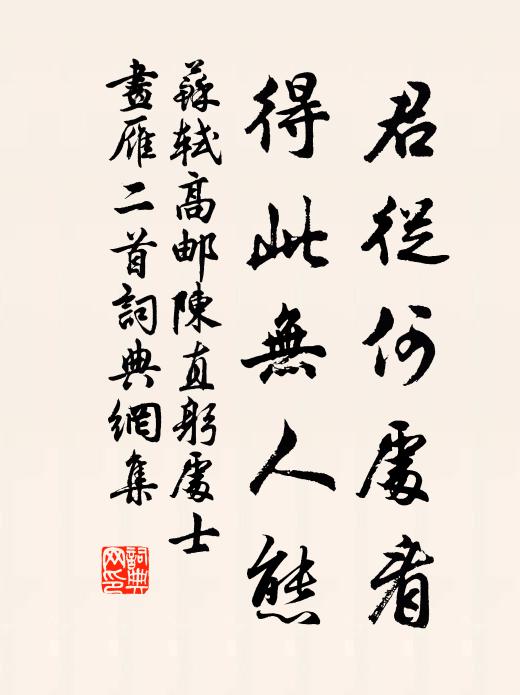 君從何處看
得此無人態
蘇軾高郵陳直躬處士
畫雁二首詞典網集
詞典
网印